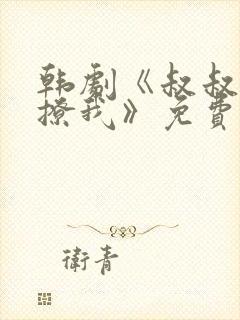 韩劇《叔叔
撩我》免費
衛青